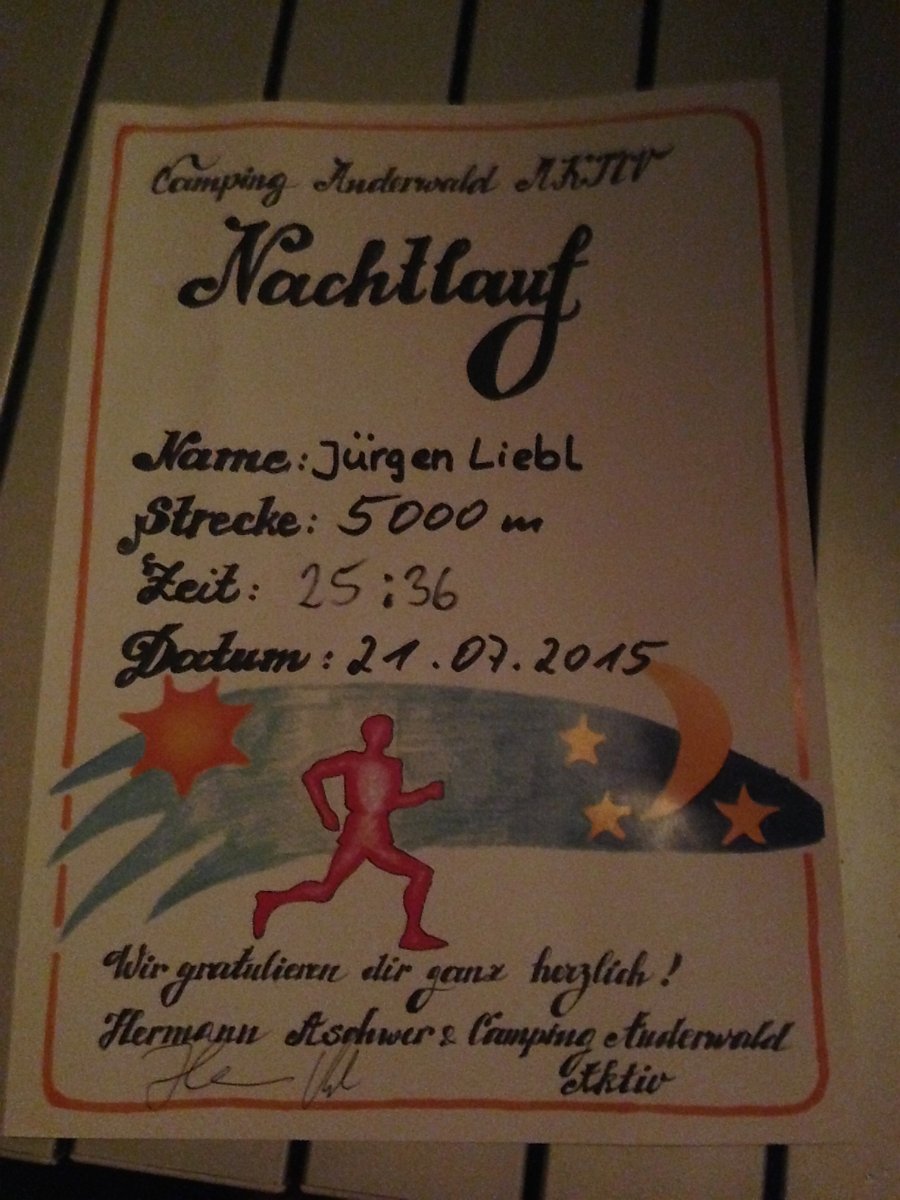 Camping Anderwald AKTIV
Nachtlauf
Name: Jürgen Liebl
Strecke: 5000 m
Zeit: 25:36
Datum: 21.07.2015
Wir gratulieren dir ganz herzlich!
Hermann Aschwer & Camping Anderwald
Aktiv